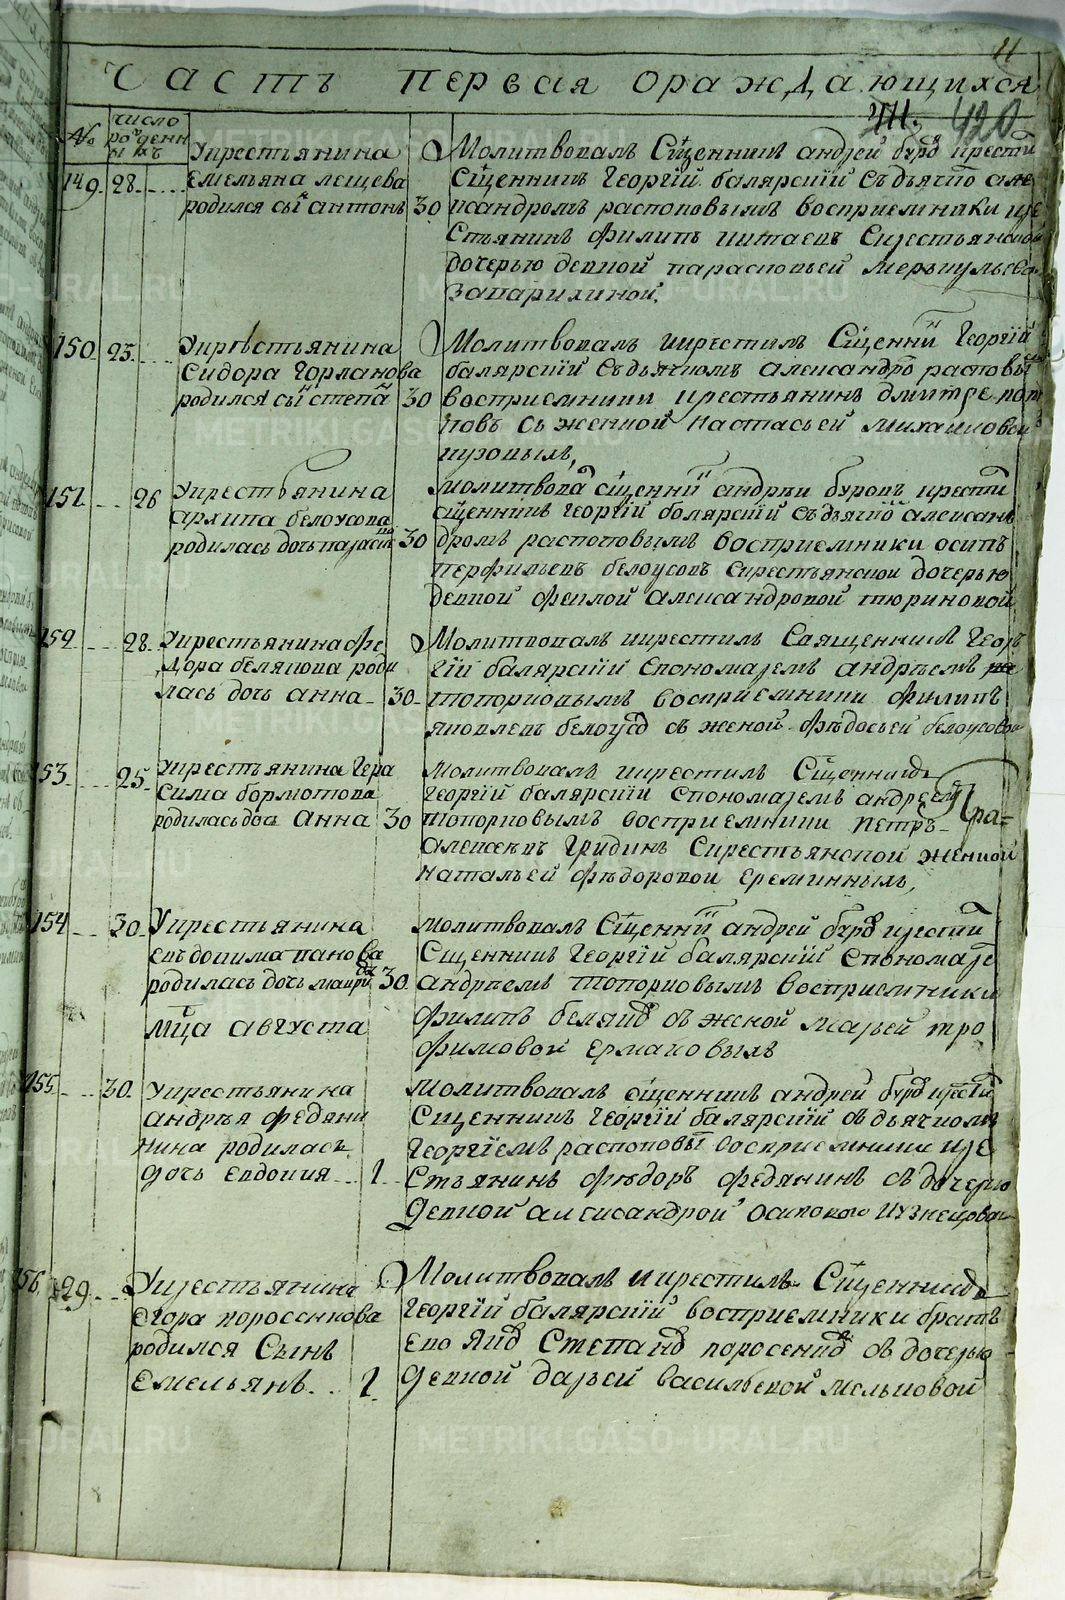 11
Часть первая ораждающихся
420
№
число рожденны хъ
149. 28.
Укрестьянина
Емельяна лещева
родился сынъ антонъ 30
Молитвовалъ Сщенникъ андрей буровъ крести
Сщенникъ Георгій балярскій Съдьячко алек
ксандромъ распоповымъ восприемники кре
Стьянинъ филипъ китаевъ Скрестьянской
дочерью девкой парасковьей меркульева
Запарихиной.
150 23.
Укрестьянина
Сидора Горланова
родился сынъ степанъ 30
Молитвовалъ икрестилъ Сщенникъ Георгій
балярскій Съдьячкомъ александромъ распоповы
восприемники крестьянинъ дмитре
ковъ Съ женкой настасьей михаиловой
151. 26
Укрестьянина
архипа белоусова
родилась дочь параск 30
молитвова сщенникъ андреи буровъ крести
сщенникъ георгій балярскій съдьячко алексан
дромъ распоповымъ восприемники осипъ
перфильевъ белоусовъ скрестьянской дочерью
девкой феклой александровой тюриновой
152. 28.
Укрестьянина фе
дора белякова роди
лась дочь анна 30.
Молитвовалъ икрестилъ Священникъ Геор
гій балярскій Спономаремъ андрѣемъ
топорковымъ восприемники филипъ
яковлевъ белоусовъ съ женой фѣдосьей белоусовой
153. 25.
Укрестьянина Гера
сима бормотова
родилась дочь анна 30
Молитвовалъ икрестилъ Сщенникъ
Георгій балярскій Спономаремъ андреемъ
топорковымъ восприемники петръ
алексеевъ Гридинъ Скрестьянской женкой
натальей фѣдоровой ереминныхъ,
154 30.
Укрестьянина
евдокима панова
родилась дочь мавра 30
Молитвовалъ Сщенникъ андрей буровъ крести
Сщенникъ Георгій балярскій Спономаре
андреемъ топорковымъ восприемники
филипъ беляковъ съ женой марьей тро
фимовой ермаковыхъ
мца августа
155. 30.
Укрестьянина
андрѣя федяни
нина родилась
дочь евдокия 1.
Молитвовалъ сщенникъ андрей буровъ крести
Сщенникъ георгій балярскій съ дьячкомъ
георгіемъ распоповы восприемники кре
Стьянинъ фѣдоръ федянинъ съ дочерью
девкой александрой осиповой кузнецовой
156. 29.
Укрестьянина
Егора поросенкова
родился Сынъ
Емельянъ 1.
Молитвовалъ икрестилъ Сщенникъ
Георгій балярскій восприемники братъ
ево Степанъ поросенковъ съ дочерью
девкой дарьей васильевой мельковой
METRIKI.GASO-URAL.RU